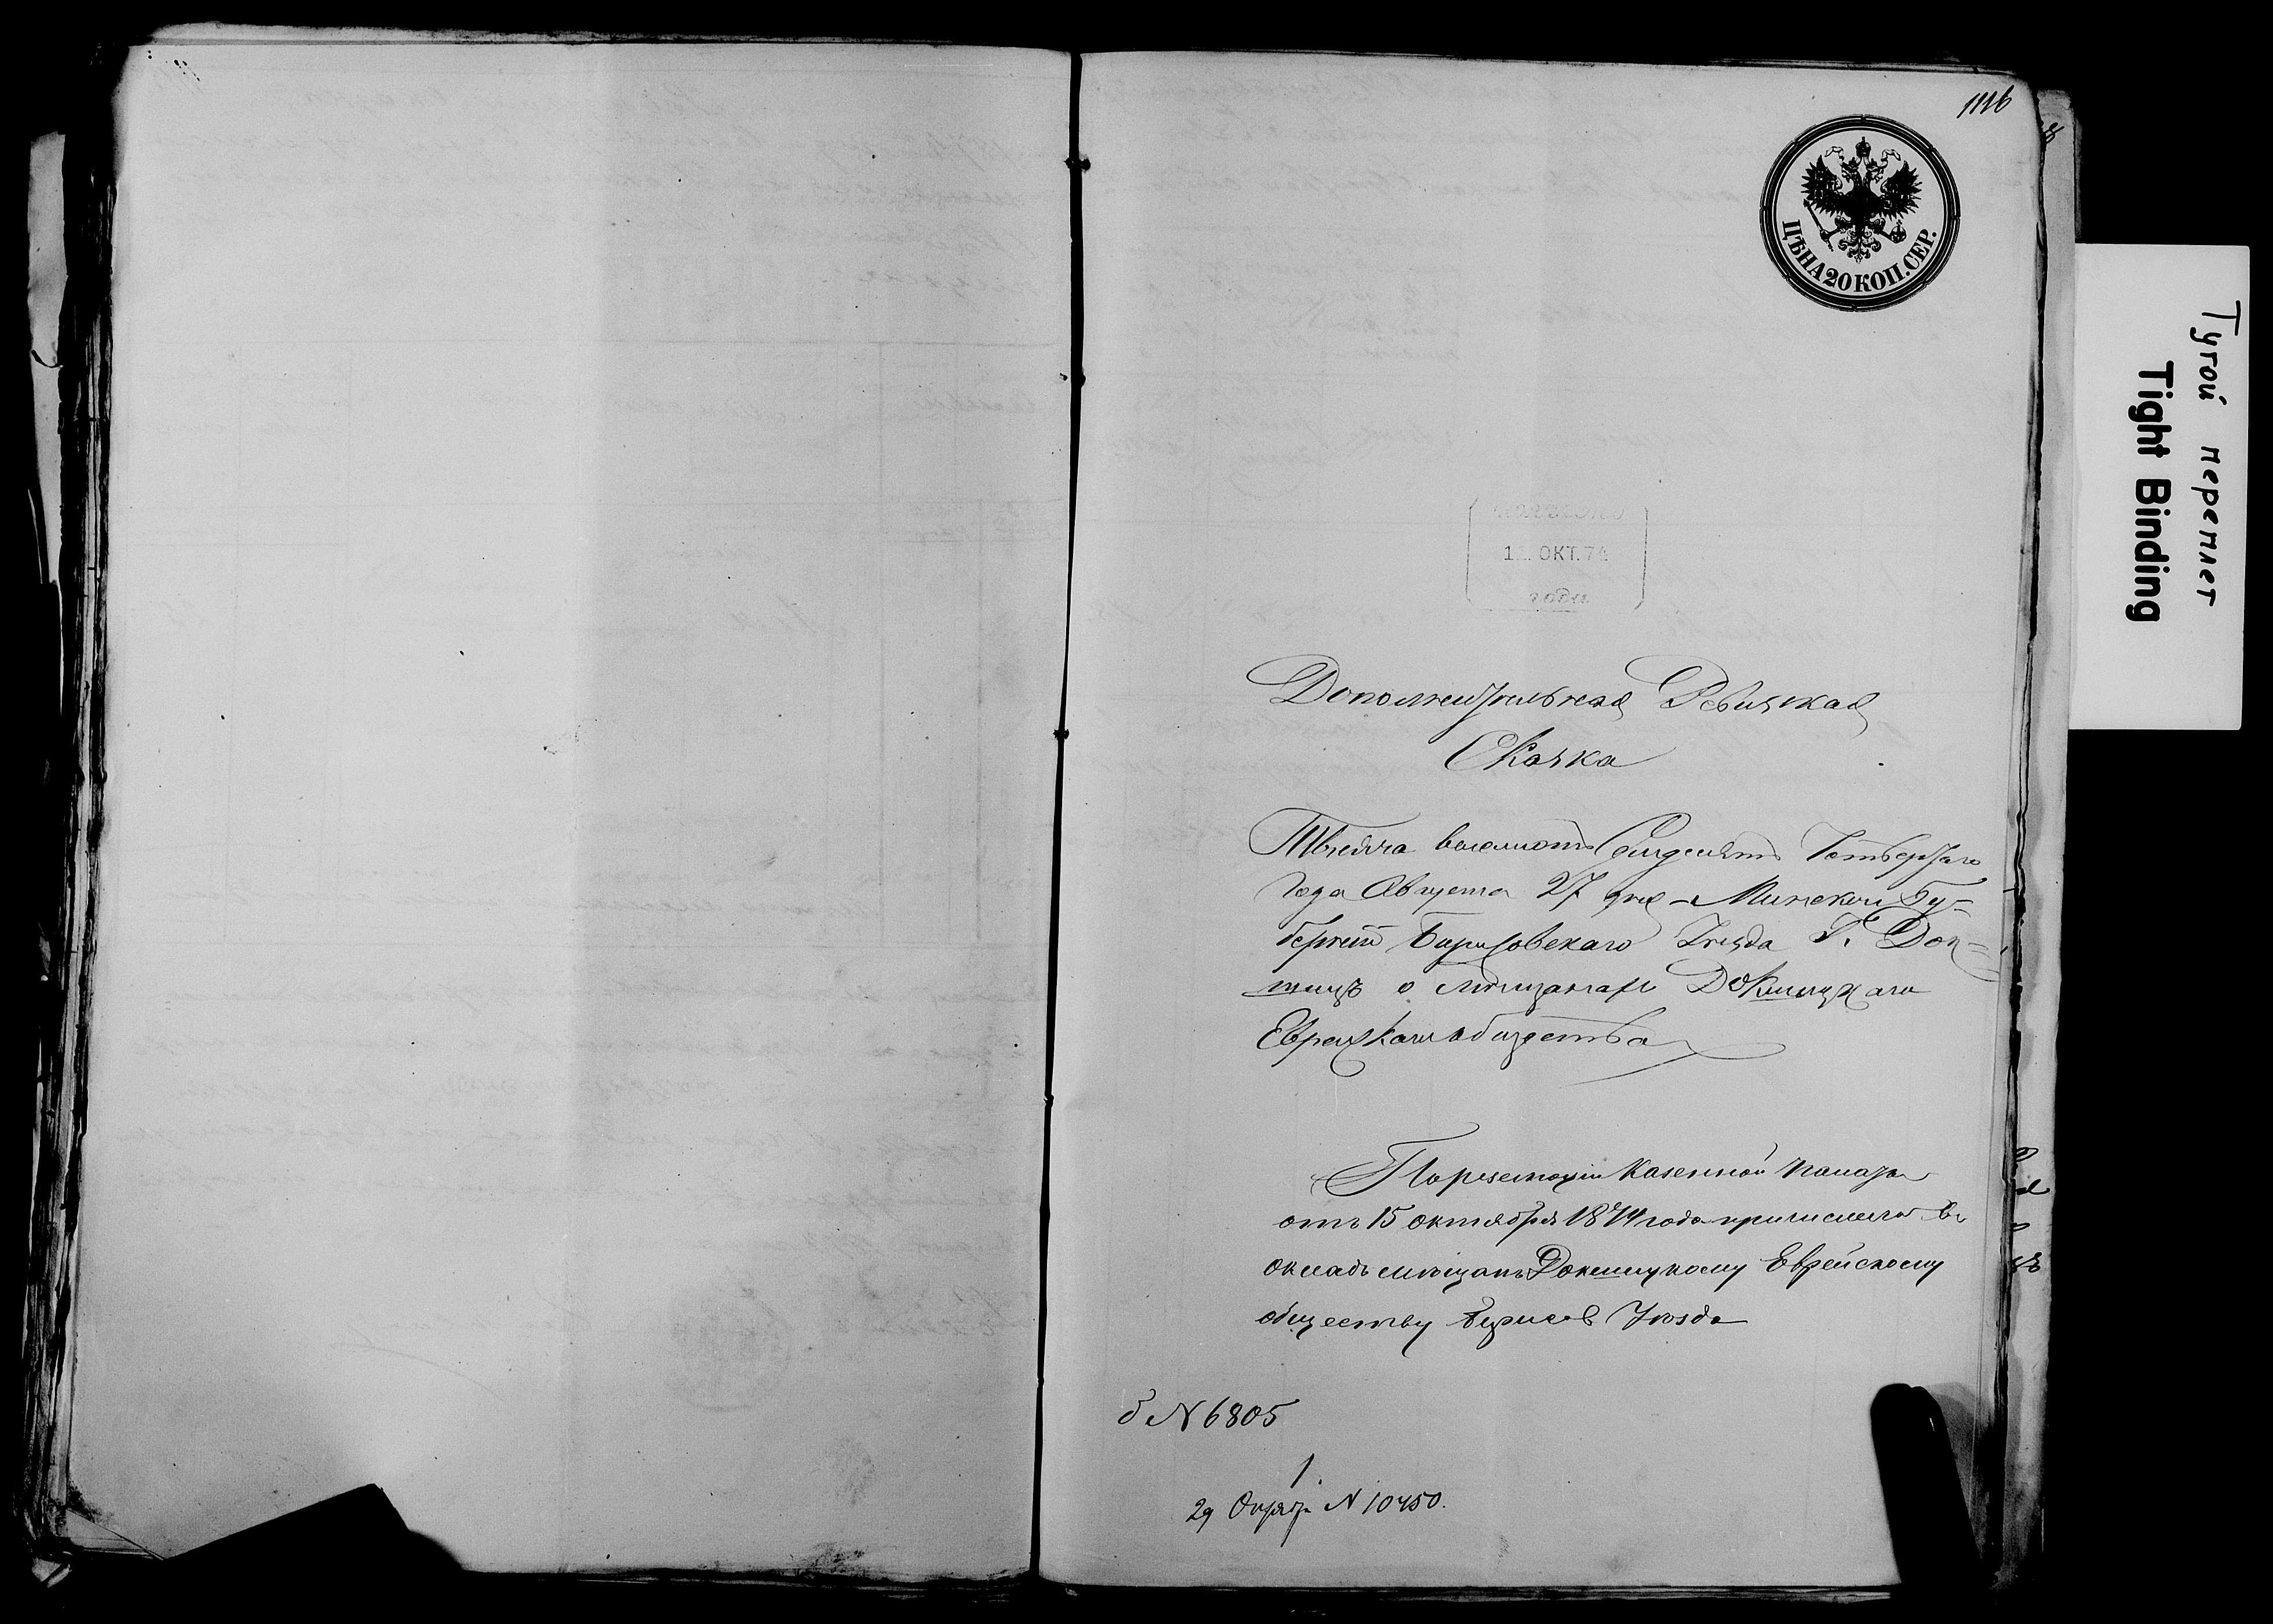 1116
ЦѢНА 20 КОП. СЕР.
Тугой переплет
Tight Binding
ОКТ. 74
года
Дополнительная Ревизкая
Сказка
Тысяча восемьсотъ Семдесятъ Четвертаго
Года Августа 27 дня Минской Гу=
берніи Борисовскаго Уезда Г. Док=
шицъ о мѣщанахъ Докшицкаго
Еврейскаго общества
По резолюціи Казенной Палаты
отъ 15 октября 1874 года причислена въ
окладъ мѣщанъ Докшицкому Еврейскому
обществу Борисов Уѣзда
N 6805
1.
29 Октяб. N 10450.